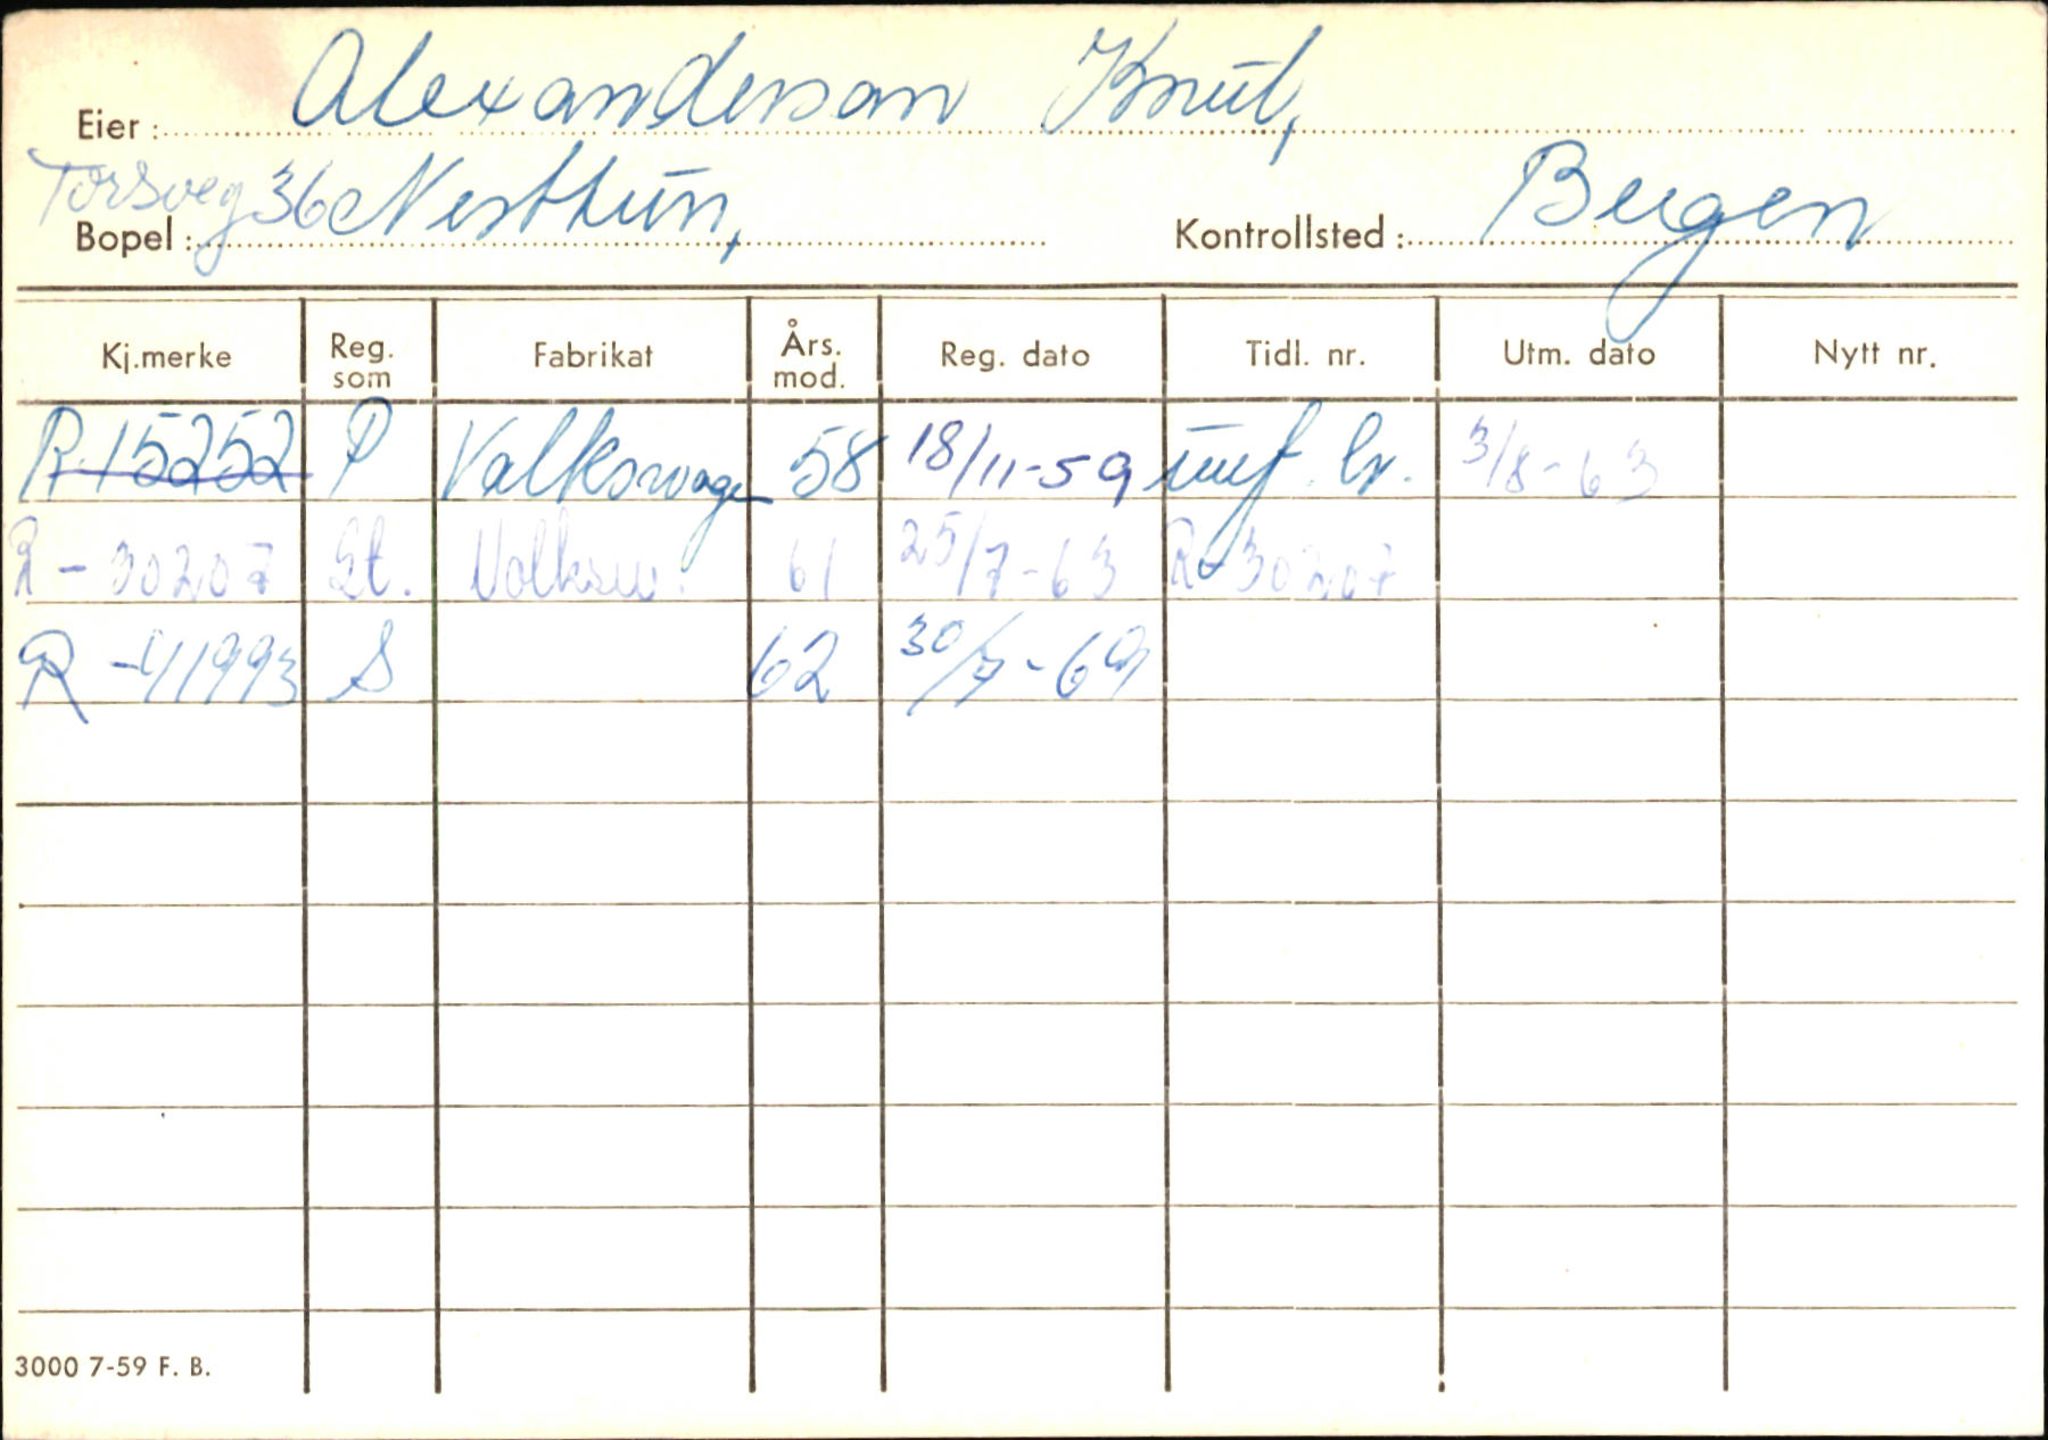 Eier: Alexanderson Knut,
Torsveg 36
Bopel: Nesttun, Kontrollsted: Bergen
Kj.merke Reg. som Fabrikat Års. mod. Reg. dato Tidl. nr. Utm. dato Nytt nr.
R-15252 P Volkswagen 58 18/11-59 3/8-63
R-30207 St. Volksw. 61 25/7-63 R-30207
R-41993 S 62 30/7-69
3000 7-59 F. B.